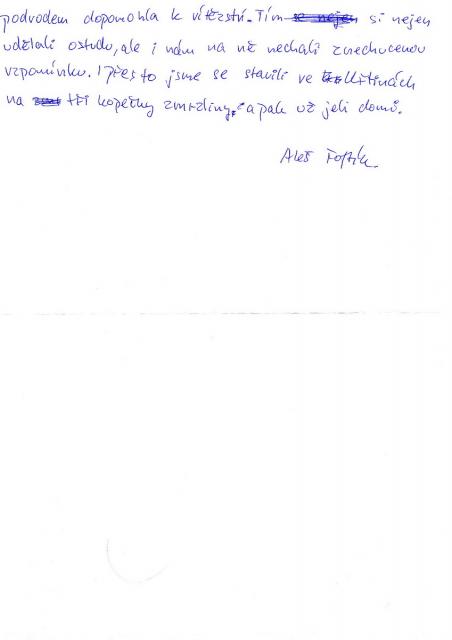 podvodem dopomohla k vítězství. Tím si nejen
udělali ostudu, ale i nám na ně nechali znechucenou
vzpomínku. I přes to jsme se stavili ve Kltinách
na tři kopečky zmrzliny, a pak už jeli domů.
Aleš Fojtík